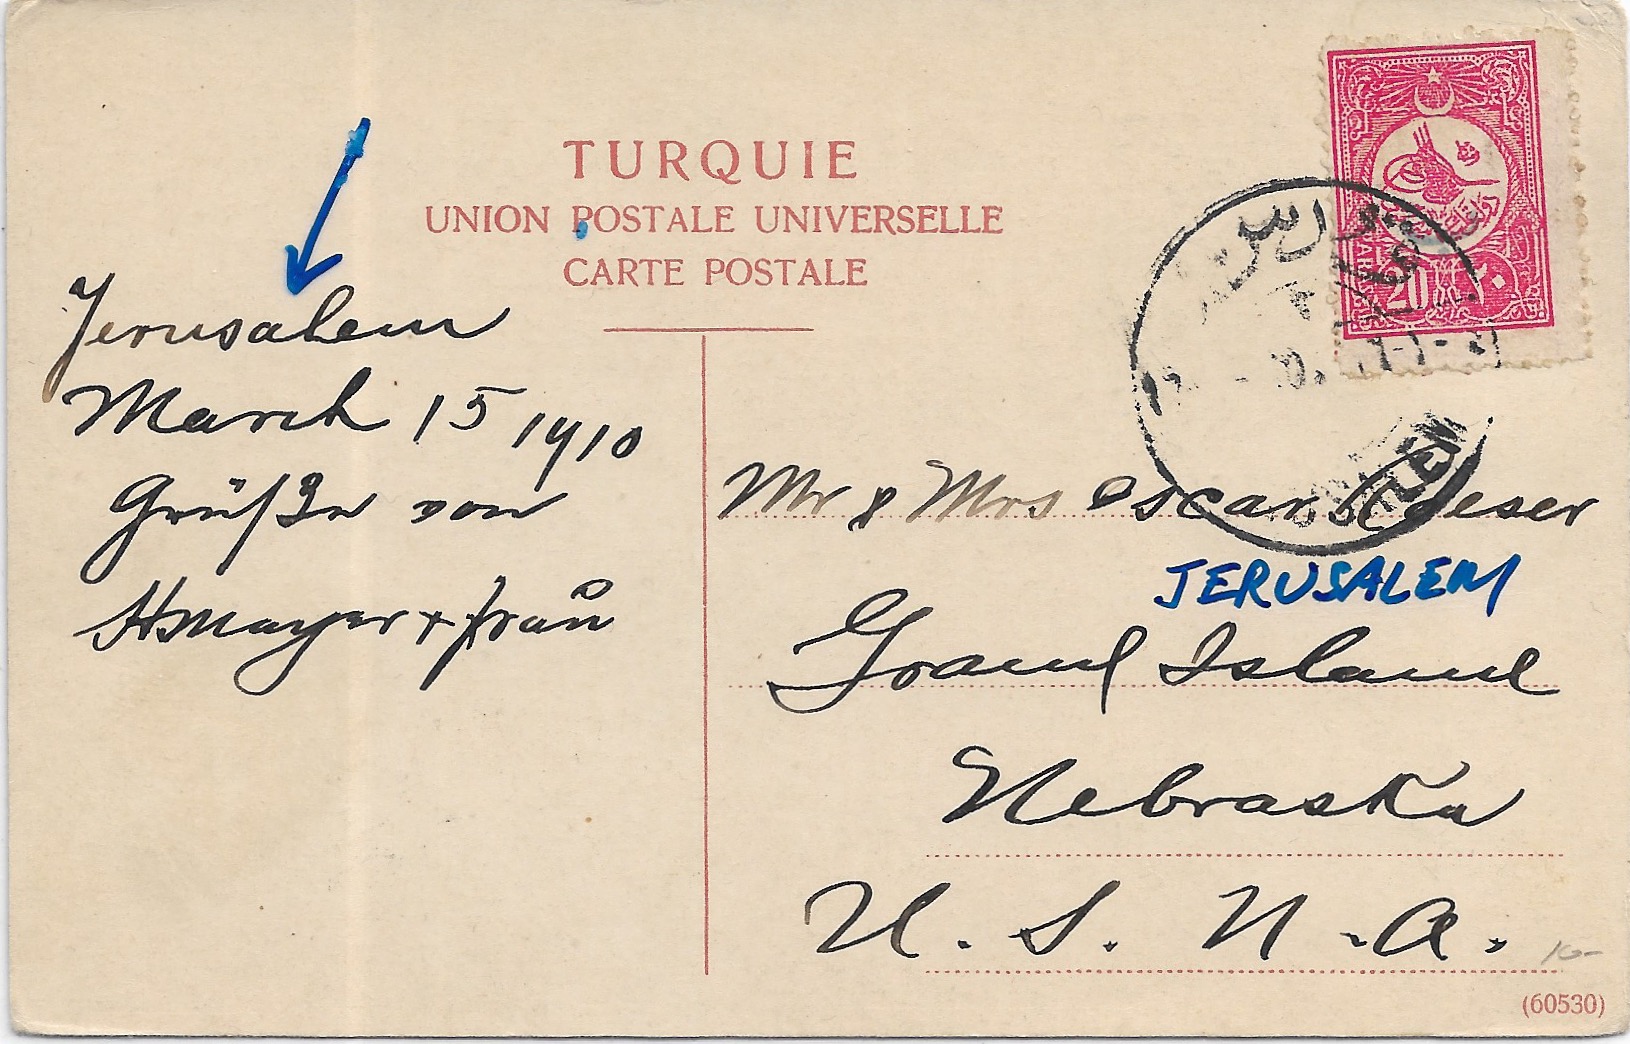 TURQUIE
UNION POSTALE UNIVERSELLE
CARTE POSTALE
Jerusalem
March 15 1910
Grüße von
HMayer + frau
20
٢٠
Mr & Mrs Oscar Roeser
JERUSALEM
Grand Island
Nebraska
U. S. N. A.
(60530)